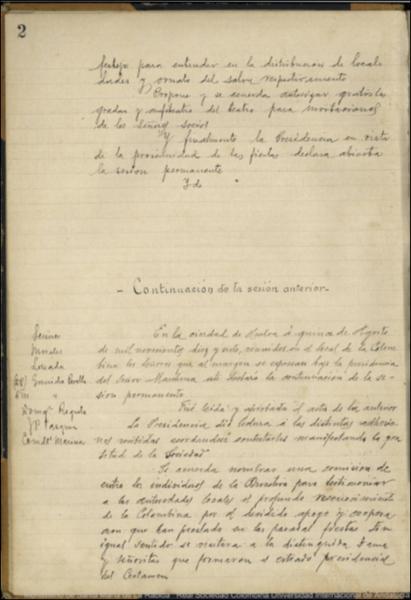 2
festejo para entender en la distribución de locali
dades y ornato del salón respectivamente
Propone y se acuerda autorizar gratis la
gradas y anfiteatro del teatro para invitaciones
de los Señores socios
Y finalmente la Presidencia en vista
de la proximidad de las fiestas declara abierta
la sesión permanente
- Continuación de la sesión anterior -
En la ciudad de Huelva á quince de Agosto
Morales
de mil novecientos diez y siete, reunidos en el local de la Colom
Losada
bina los señores que al margen se expresan bajo la presidencia
del Señor Marchena se la continuación de la se
sión permanente
Fué leída y aprobada el acta de la anterior
La Presidencia dió lectura á las distintas adhesio
nes recibidas acordándose contestarlas manifestando la gra
titud de la Sociedad
Se acuerda nombrar una comisión de
entre los individuos de la Directiva para testimoniar
a las autoridades locales el profundo reconocimiento
de la Colombina por el decidido apoyo y coopera
ción que han prestado en las pasadas fiestas. En
igual sentido se visitara a la distinguida dama
y señoritas que formaron el estrado presidencial
del Certamen